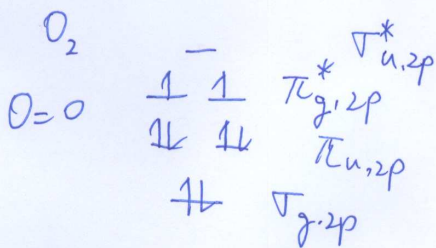 O₂
σ*u,2p
O=O
π*g,2p
πu,2p
σg.2p